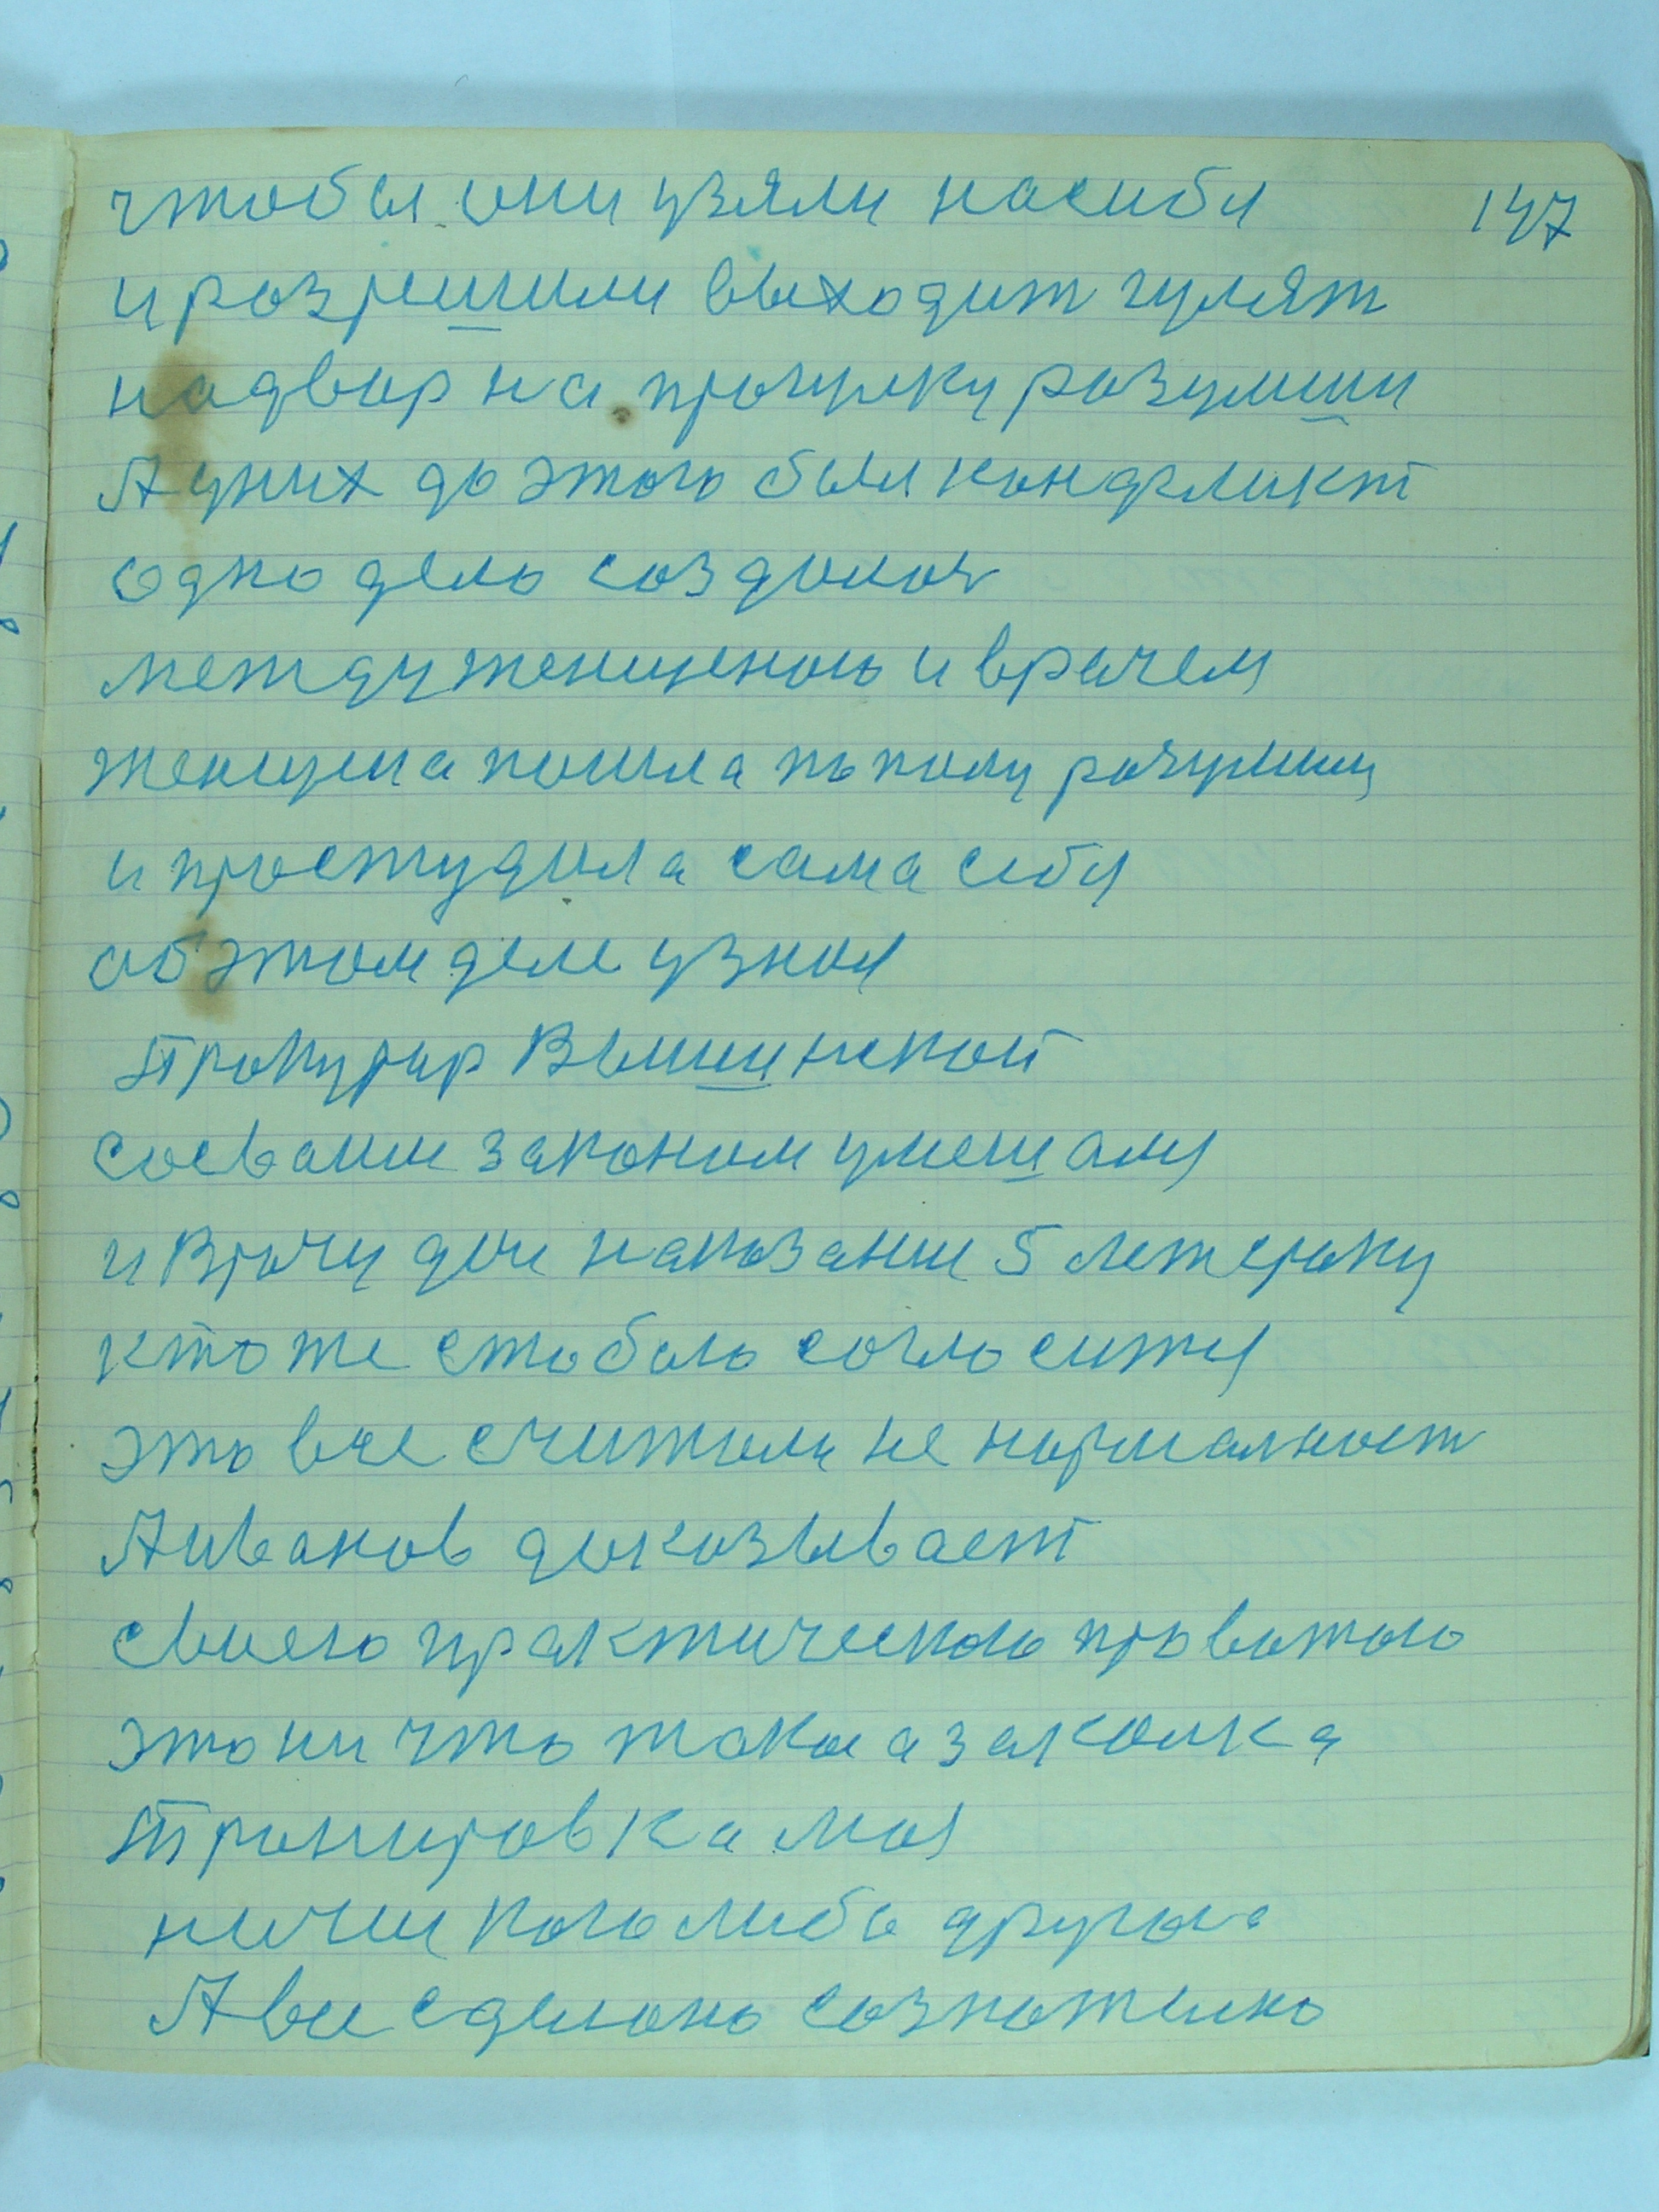 чтобы они узяли насибя 147
и розрешили выходит гулят
надвор на прогулку розумши
А уних до этого был конфликт
одно дело создалос
между женщеною и врачем
женщина пошла пополу розумши
и простудила сама себя
об этом деле узнал
Прокурор Вышинской
соеваним законом умешался
и Врачу дали наказание 5 лет сроку
кто же стобою согласится
это все считали не нормалност
А иванов доказывает
своею практическою провотою
это ни что такое а закалка
Тренировка моя
ничия кого либо другога
А все сделано сознателно